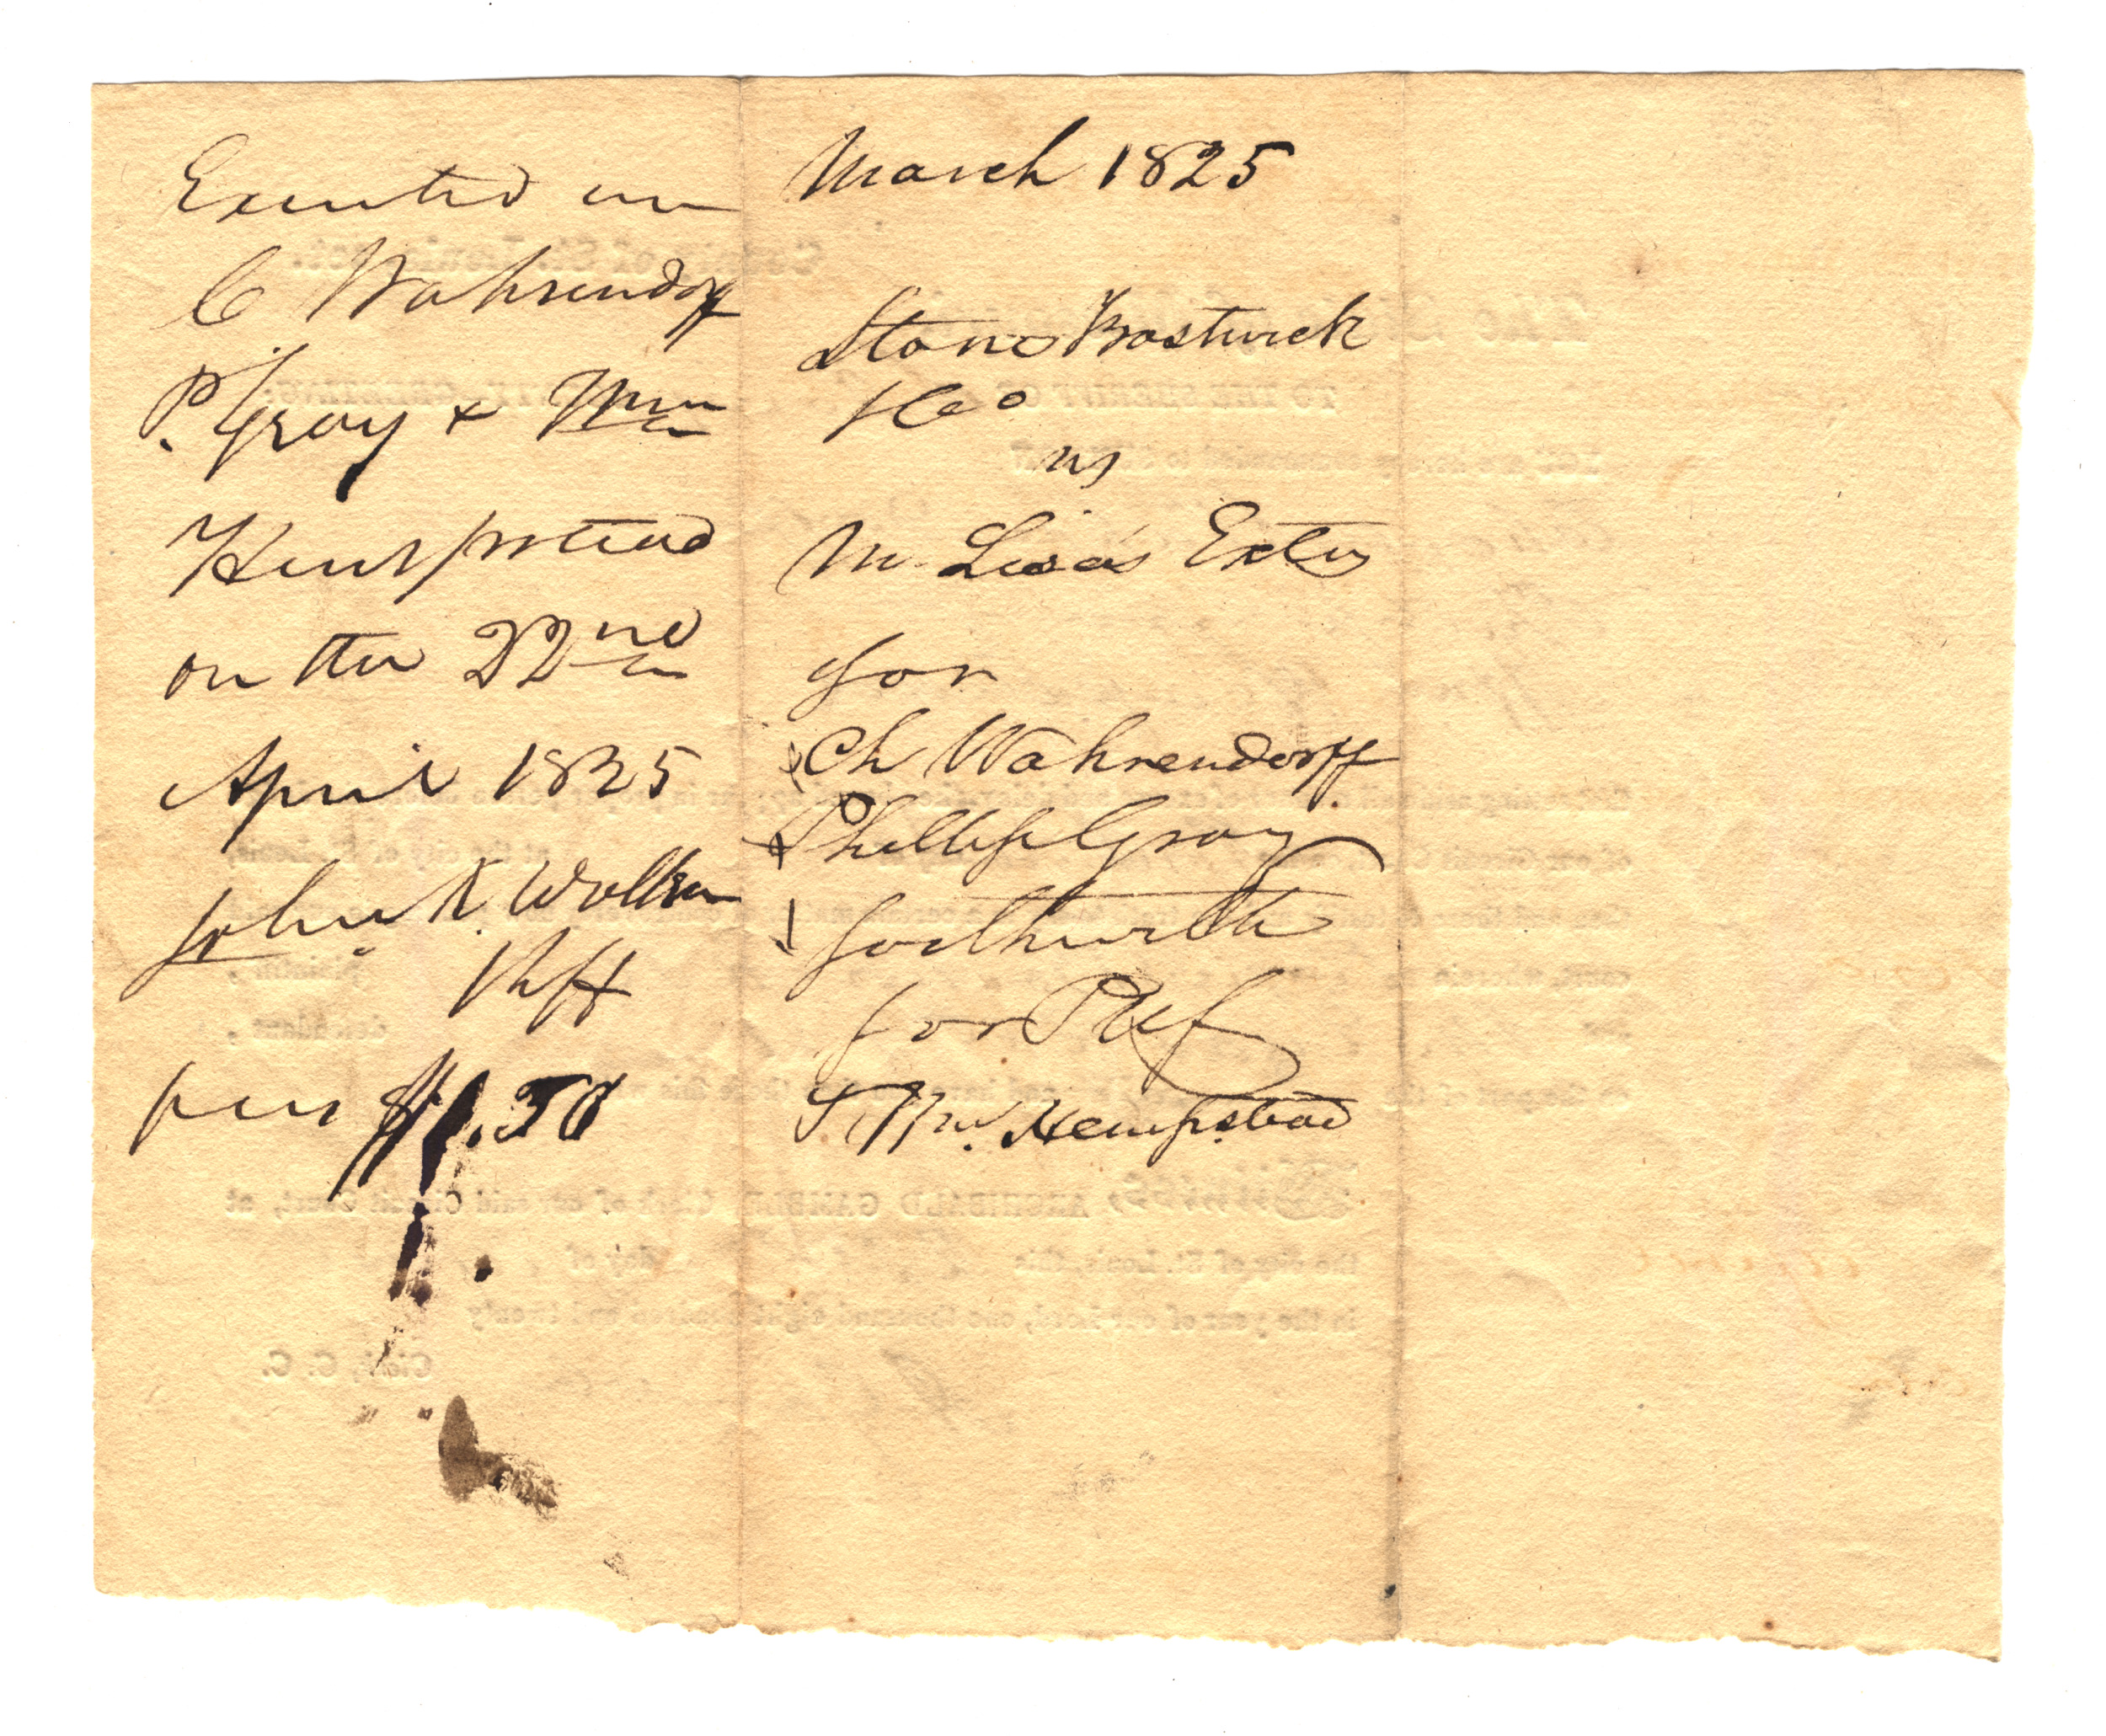 Executed on
C Wahrendorff
P. Gray & Wm
Hempstead
on the 22nd
April 1825
John K. Walker
Shff
fees $1.50
March 1825
Stone Bostwick
& Co
vs
M. Lisa's Exters
for
Ch Wahrendorff
Phillip Gray
forthwith
for Pltf
Wm. Hempstead